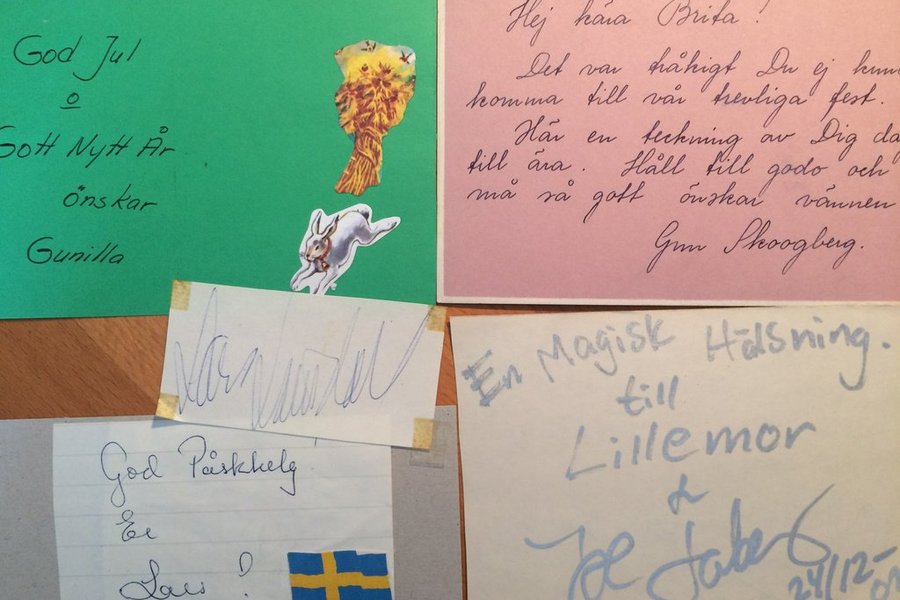 God Jul
o
Gott Nytt År
önskar
Gunilla
Hej kära Brita!
Det var tråkigt Du ej kun
komma till vår trevliga fest.
Här en teckning av Dig da
till ära. Håll till godo och
må så gott önskar vännen
Gun Skoogberg.
God Påskhelg
Er
Lars!
En Magisk Hälsning.
till
Lillemor
&
Joe Labero
24/12-0